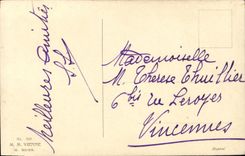 Meilleures amitiés
Mademoiselle
M. Therese Thuillier
6 bis rue Leroyer
Vincennes
M. M. VIENNE